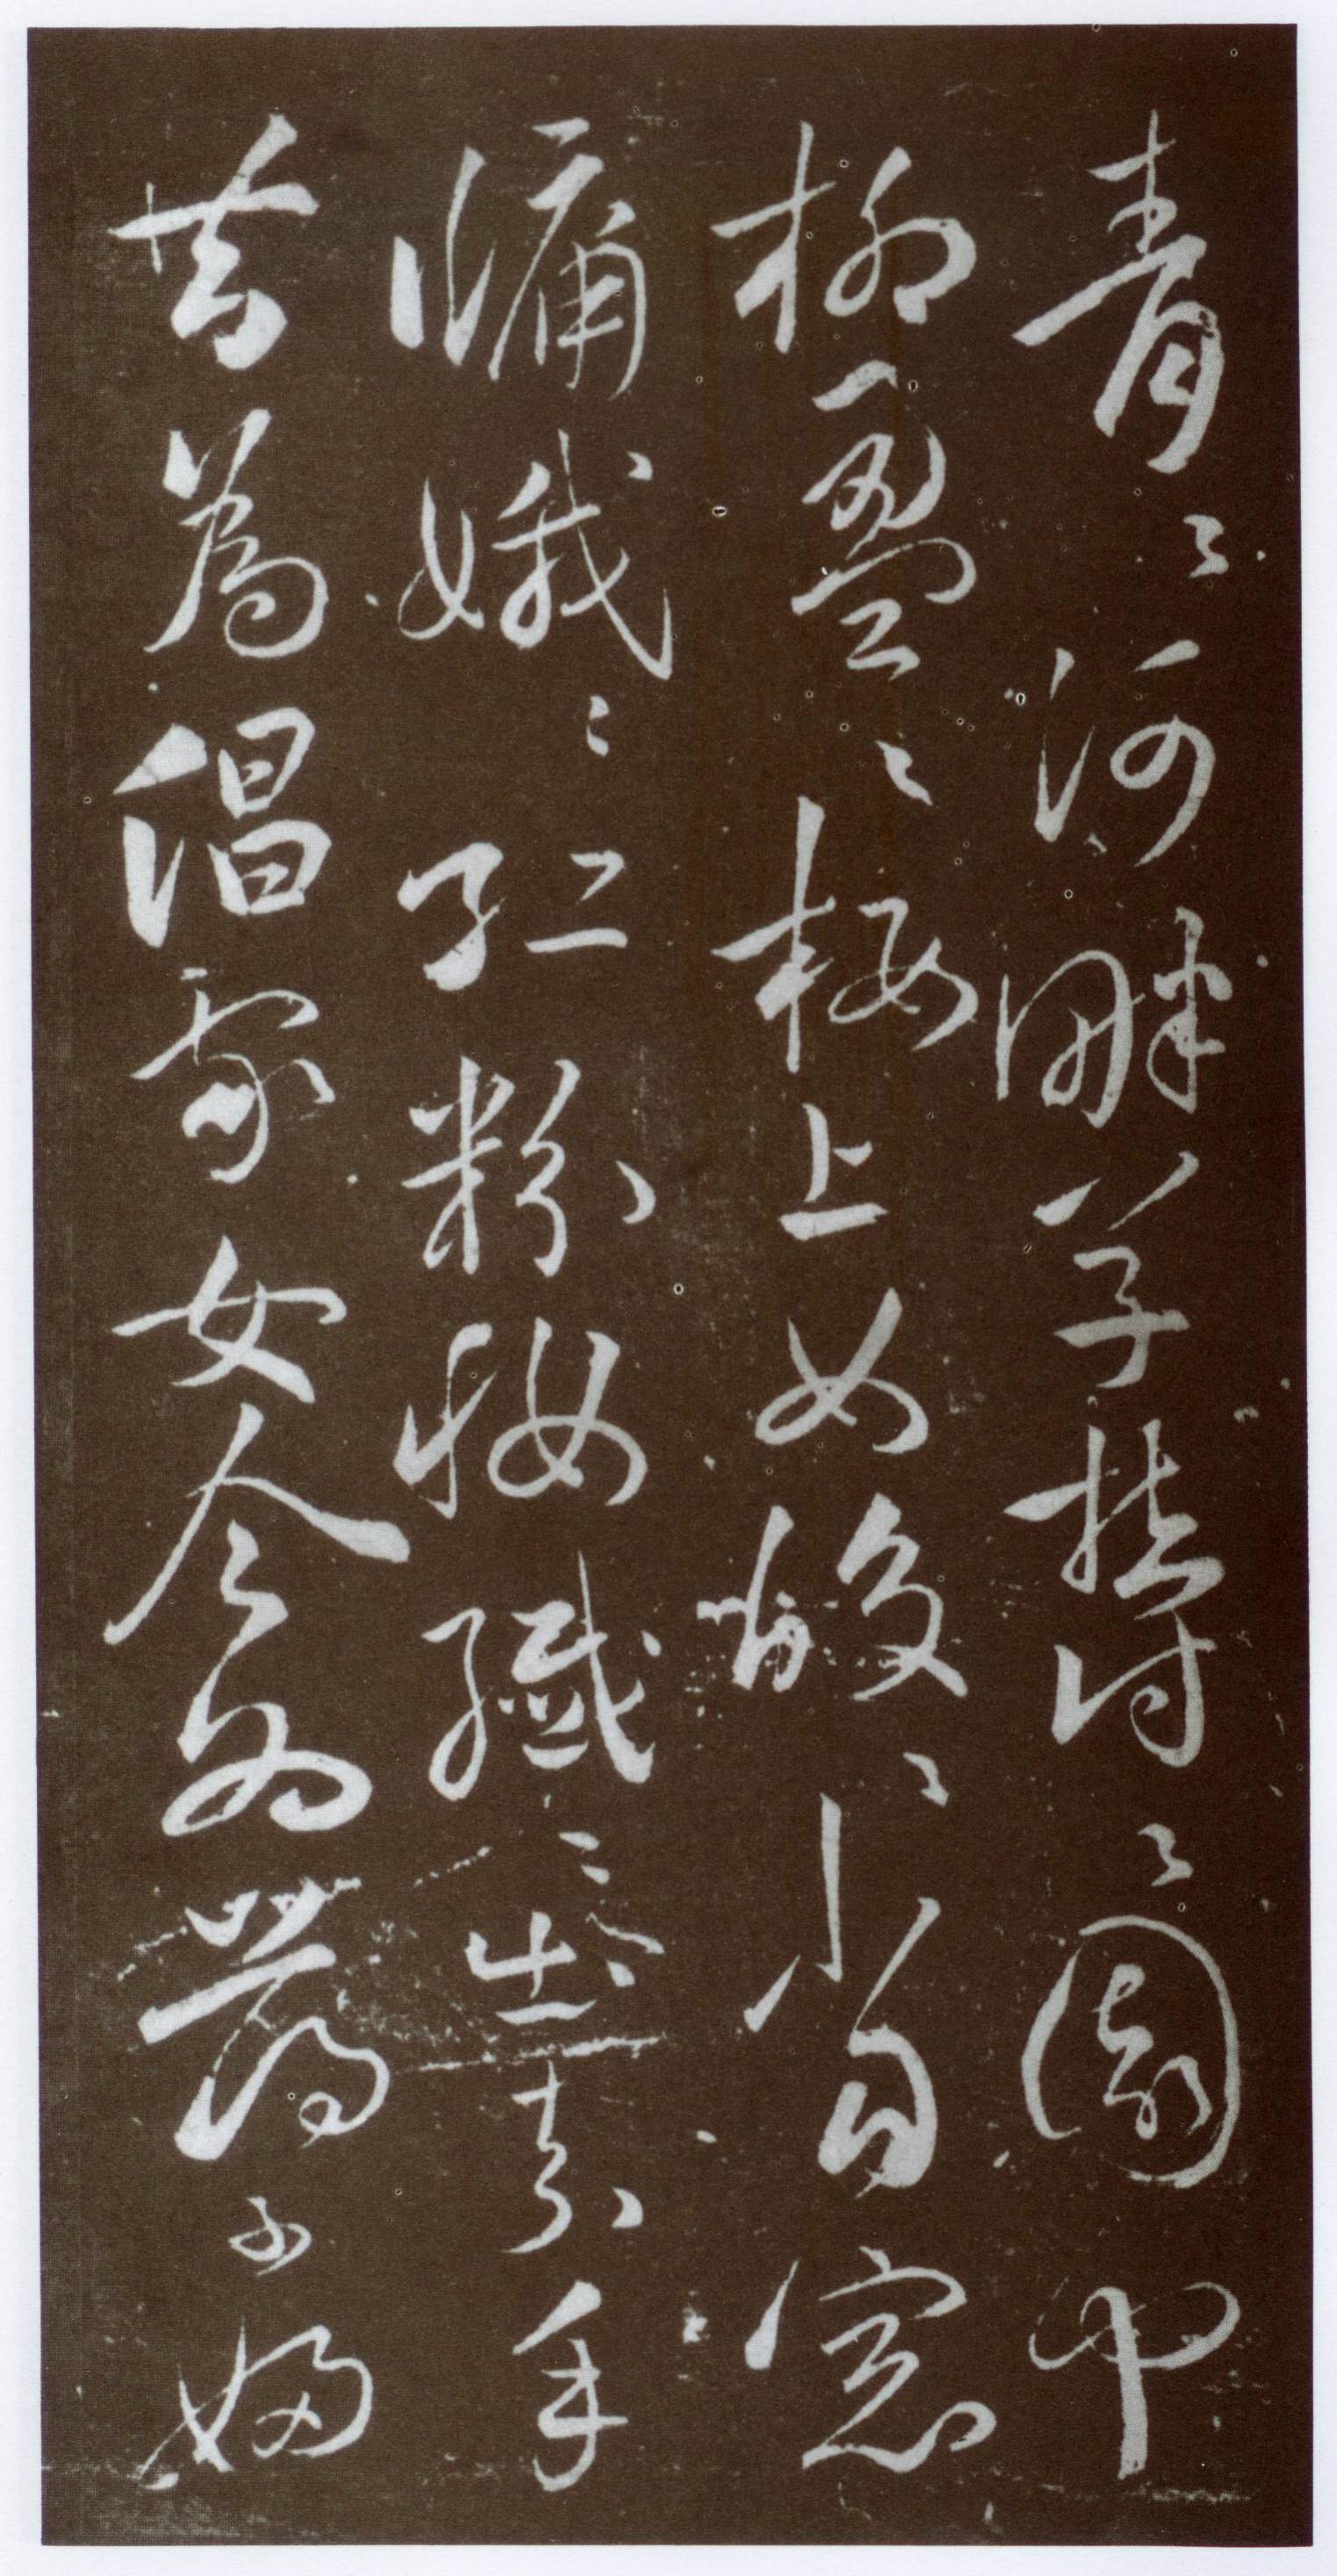 青〻河畔草鬱〻園中
柳盈〻樓上女皎〻當窓
牖娥〻紅粉妝纖〻出素手
昔為倡家女今為蕩子婦